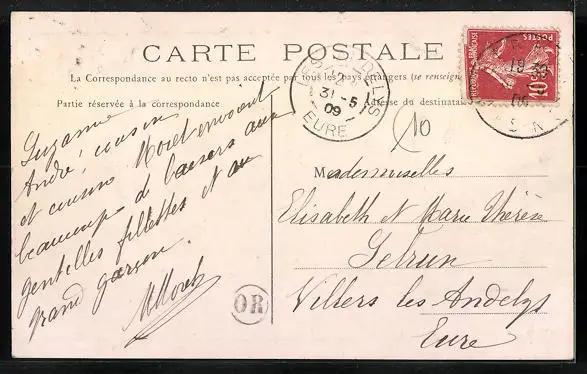 CARTE POSTALE
La Correspondance au recto n'est pas acceptée par tous les pays étrangers (se renseign
Partie réservée à la correspondance
Adresse du destinataire
LES ANDELYS
12
31-5
09
EURE
10
Suzanne
André, cousin
et cousine Morel envoient
beaucoup de baisers aux
gentilles fillettes et au
grand garçon.
MMorel
OR
Mesdemoiselles
Elisabeth et Marie Thérèse
Villers les Andelys
Eure